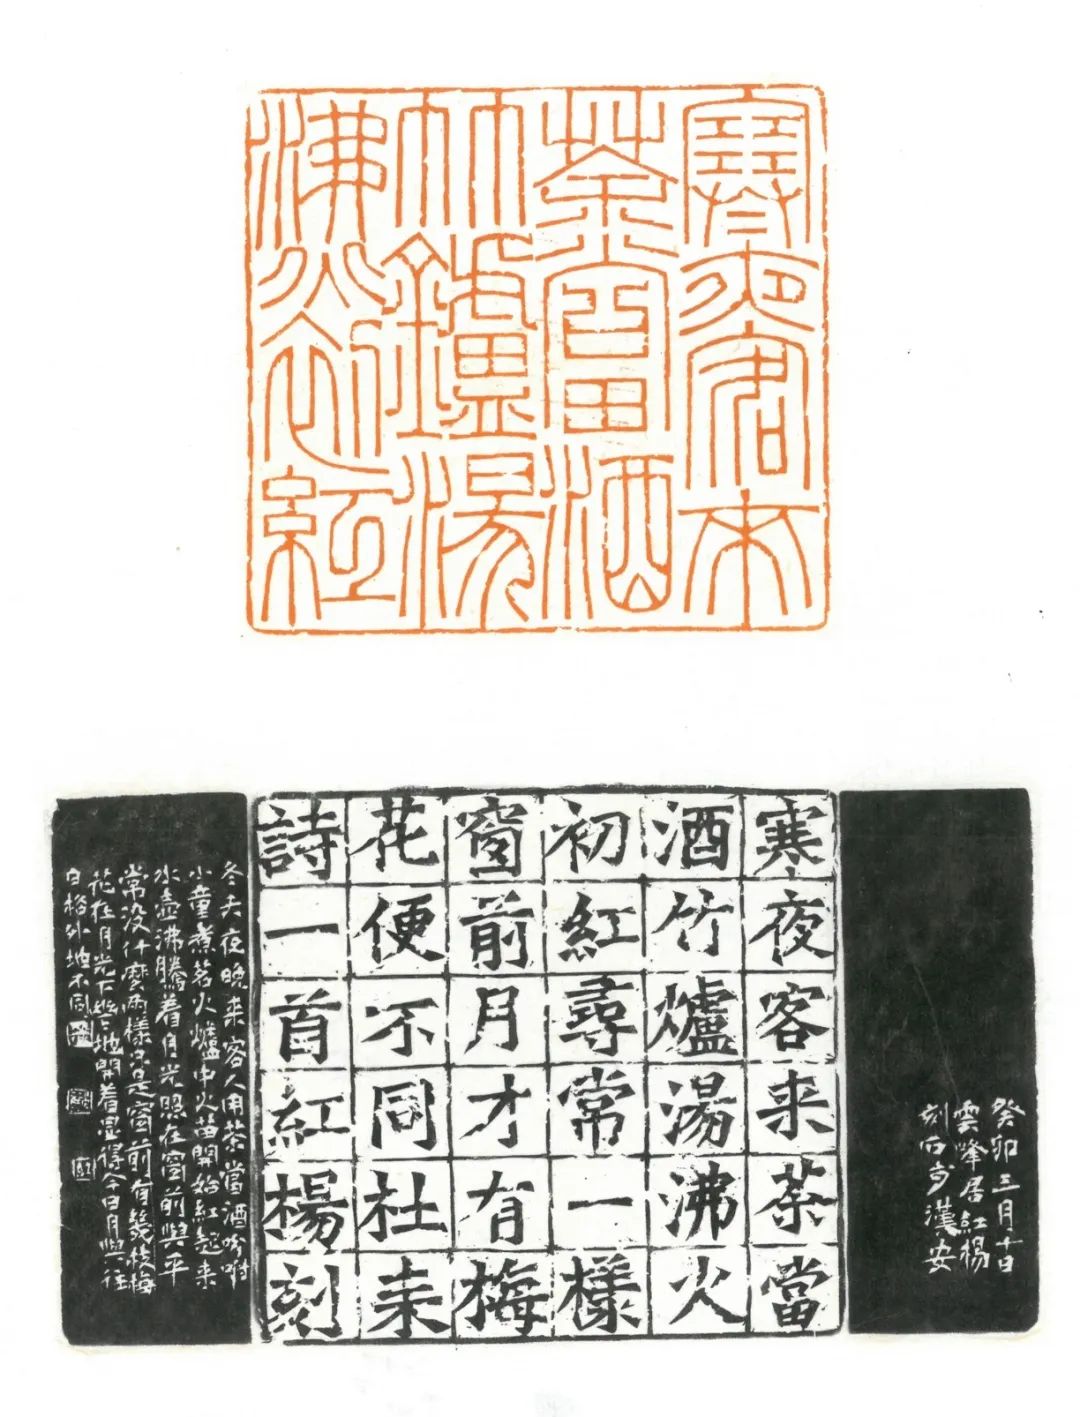 寒夜客来
茶當酒
竹鑪湯
沸火初紅
癸卯三月十日
雲峰居紅楊
刻石于漢安
寒夜客来茶當
酒竹爐湯沸火
初紅尋常一樣
窗前月才有梅
花便不同杜耒
詩一首紅楊刻
冬天夜晚来客人用茶當酒吩咐
小童煮茗火爐中火苗開始紅起来
水壺沸騰着月光照在窗前與平
常没什麼兩樣只是窗前有幾枝梅
花在月光下地開着显得今日月與往
日格外地不同